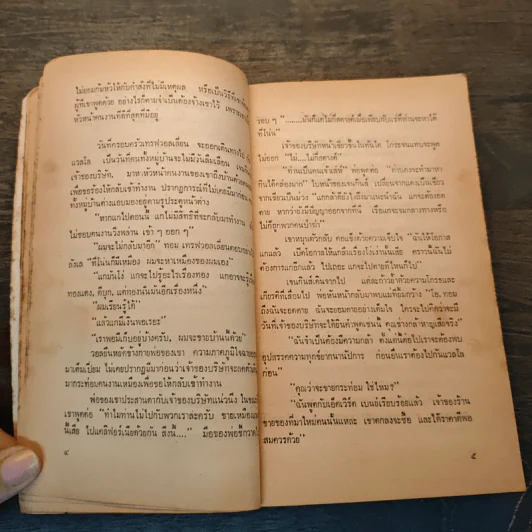 ไม่ยอมก้มหัวให้กับกำลังที่ไม่มีเหตุผล หรือเป็นวิธีที่
ผู้ที่เขาพูดด้วย อย่างไรก็ตามจำเป็นต้องจ้างเขาไว้ เพราะ
หัวหน้าคนงานที่ดีที่สุดที่มีอยู่
วันที่ครอบครัวเทรฟวอลเลียน จะออกเดินทาง
แวลโล เป็นวันที่คนทั้งหมู่บ้านจะไม่มีวันลืมเลือน
เจ้าของบริษัท มาหาหัวหน้าคนงานของเขาถึงบ้าน
เพื่อขอร้องให้กลับเข้าทำงาน ปรากฏการณ์ที่ไม่เคยมีมาก่อน
ทั้งหมู่บ้านต่างแอบมองอยู่ตามรูประตูหน้าต่าง
"หากแกไปตอนนี้ แกไม่มีสิทธิที่จะกลับมาทำงาน
ไม่รอบคนงานวิ่งพล่าน เข้า ๆ ออก ๆ"
"ผมจะไม่กลับมาอีก" ทอม เทรฟวอลเลียนตอบ
ลังเล "ที่โน่นก็มีเหมือง ผมจะหาเหมืองของผมเอง"
"แกมันโง่ แกจะไปรู้อะไรเรื่องทอง แกอาจจะรู้
ทองแดง, ดีบุก, แต่ทองนั่นมันอีกเรื่องหนึ่ง"
"ผมเรียนรู้ได้"
"แล้วแกมีเงินพอเรอะ"
"เราพอมีเก็บอยู่บ้างครับ, ผมจะขายบ้านนี้ด้วย"
วอลยืนหลังข้างกายพ่อของเขา ความภาคภูมิใจฉาย
มาเต็มเปี่ยม ไม่เคยปรากฏมีมาก่อนว่าเจ้าของบริษัทจะถ
มากระท่อมคนงานเหมืองเพื่อขอให้กลับเข้าทำงาน
พ่อของเขาประสานตากับเจ้าของบริษัทแน่วนิ่ง ใน
เขาพูดต่อ "ทำไมท่านไม่ไปกับพวกเราล่ะครับ ขายเหมือง
นี้เสีย ไปแคลิฟอร์เนียด้วยกัน สิงนี้...." มือของพ่อ
๔
รอบ ๆ "........มันก็แค่ไม่กี่ตาตดเมื่อเทียบกับแร่ที่ท่านจะหาได้
ที่โน่น"
เจ้าของบริษัทหน้าเขียวขึ้นในทันใด โกรธจนแทบจะพูด
ไม่ออก "ไม่....ไม่กี่ตาตด"
"ที่นั่นเป็นคนเจ้าเล่ห์" พ่อพูดต่อ "ท่านคงจะทำมาหา
กินได้คล่องมาก" ใบหน้าของเขาเดี๋ยวนี้ เปลี่ยนจากแดงเป็นเขียว
จากเขียวเป็นม่วง "แกกล้าดียังไงถึงมาแนะนำฉัน แกจะต้องอด
ตาย หากว่ายังมีปัญญาออกจากที่นี่ เรือแกจะจมกลางทางหรือ
ไม่ก็ถูกพวกคนป่าฆ่า"
เขาหมุนตัวกลับ คอแข็งด้วยความเจ็บใจ "ฉันให้โอกาส
แกแล้ว เปิดโอกาสให้แกล้างเรื่องโง่เง่านั้นเสีย คราวนี้ฉันไม่
ต้องการแกอีกแล้ว ไปเถอะ แกจะไปตายที่ไหนก็ไป"
เขาหันส้นเดินจากไป แต่ละก้าวย้ำด้วยความโกรธและ
เกียรติที่เสียไป พ่อหันหน้ากลับมาพบแม่ที่ยิ้มกว้าง "โอ, ทอม
ถึงฉันจะอดตาย ฉันจะยอมตายอย่างเต็มใจ ใครจะไปคิดว่าจะมี
วันที่เจ้าของบริษัทจะได้ยินคำพูดเช่นนี้ คุณช่างกล้าหาญเสียจริง"
"ฉันจำเป็นต้องมีความกล้า ตั้งแต่นี้ต่อไปเราจะต้องพบ
อุปสรรคความทุกข์ยากนานัปการ ก่อนอื่นเราต้องไปกันแวลโล
ก่อน"
"คุณว่าจะขายกระท่อม ใช่ไหม?"
"ฉันพูดกับเอ็ดเวิร์ด เบนย์เรียบร้อยแล้ว เจ้าของร้าน
ขายของที่มาใหม่คนนั้นแหละ เขาตกลงจะซื้อ และให้ราคาดีพอ
สมควรด้วย"
๕